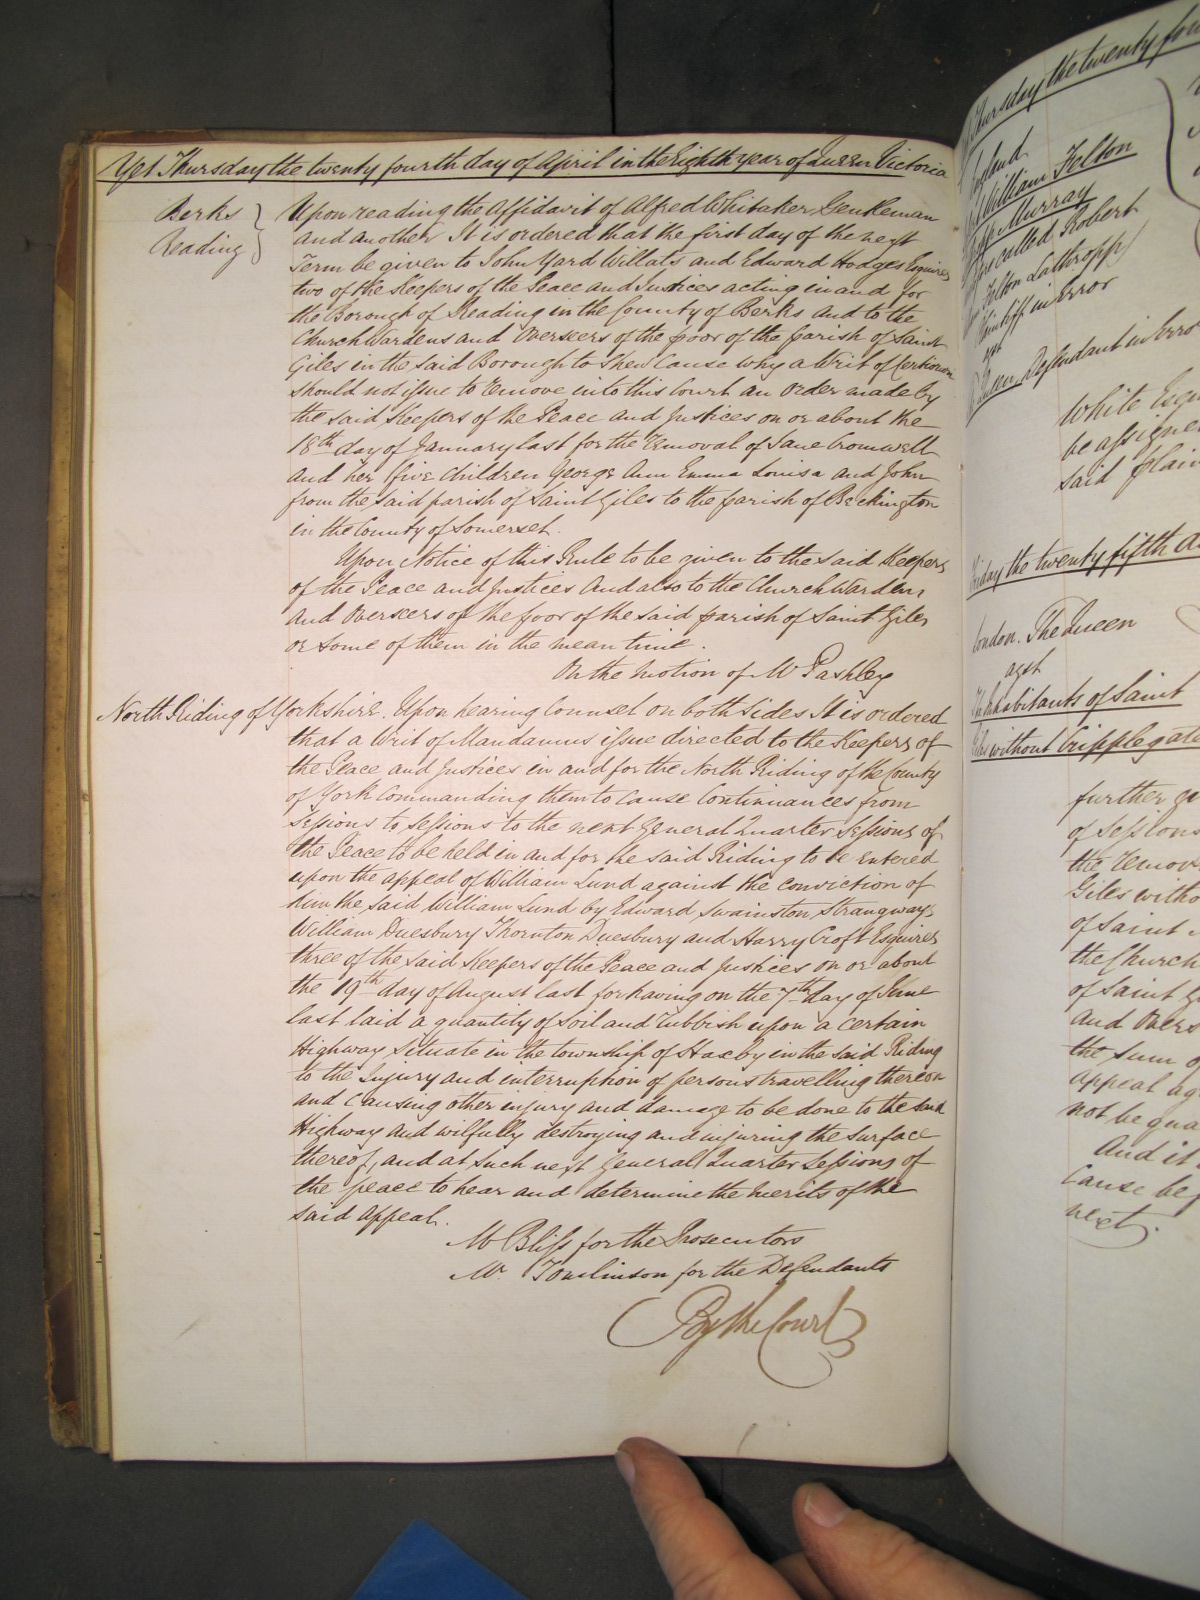 Yet Thursday the twenty fourth day of April in the Eighth year of Queen Victoria
Berks
Reading
Upon reading the Affidavit of Alfred Whitaker Gentleman
and another It is ordered that the first day of the next
Term be given to John Yard Willats and Edward Hodges Esquires
two of the Keepers of the Peace and Justices acting in and for
the Borough of Reading in the County of Berks and to the
Church Wardens and Overseers of the poor of the parish of Saint
Giles in the said Borough to shew Cause why a Writ of Certiorari
should not issue to remove into this Court an Order made by
the said Keepers of the Peace and Justices on or about the
18th day of January last for the removal of Jane Cromwell
and her five Children George Ann Emma Louisa and John
from the said parish of Saint Giles to the parish of Beckington
in the County of Somerset.
Upon Notice of this Rule to be given to the said Keepers
of the Peace and Justices And also to the Church Wardens
and Overseers of the poor of the said parish of Saint Giles
or some of them in the mean time.
On the motion of Mr Pashley
North Riding of Yorkshire. Upon hearing Counsel on both sides It is ordered
that a Writ of Mandamus issue directed to the Keepers of
the Peace and Justices in and for the North Riding of the County
of York Commanding them to cause Continuances from
Sessions to Sessions to the next General Quarter Sessions of
the Peace to be held in and for the said Riding to be entered
upon the appeal of William Lund against the conviction of
him the said William Lund by Edward Swainston Strangways
William Duesbury Thornton Duesbury and Harry Croft Esquires
three of the said Keepers of the Peace and Justices on or about
the 19th day of August last for having on the 7th day of June
last laid a quantity of Soil and rubbish upon a certain
Highway situate in the township of Haxby in the said Riding
to the Injury and interruption of persons travelling thereon
and causing other injury and damage to be done to the said
Highway and wilfully destroying and injuring the surface
thereof, and at such next General Quarter Sessions of
the peace to hear and determine the merits of the
said Appeal.
Mr Bliss for the Prosecutors
Mr. Tomlinson for the Defendants
By the Court
Thursday the twenty
William Felton
Murray
called Robert
Felton Lathropp
Plaintiff in Error
agst
Defendant in
White
be assigned
said
Friday the twenty fifth
London. The Queen
agst
Inhabitants of Saint
Giles without Cripplegate
further
of Sessions
the
Giles
of Saint
the Church
of Saint
and
the sum of
appeal
not be
And it
Cause
next.